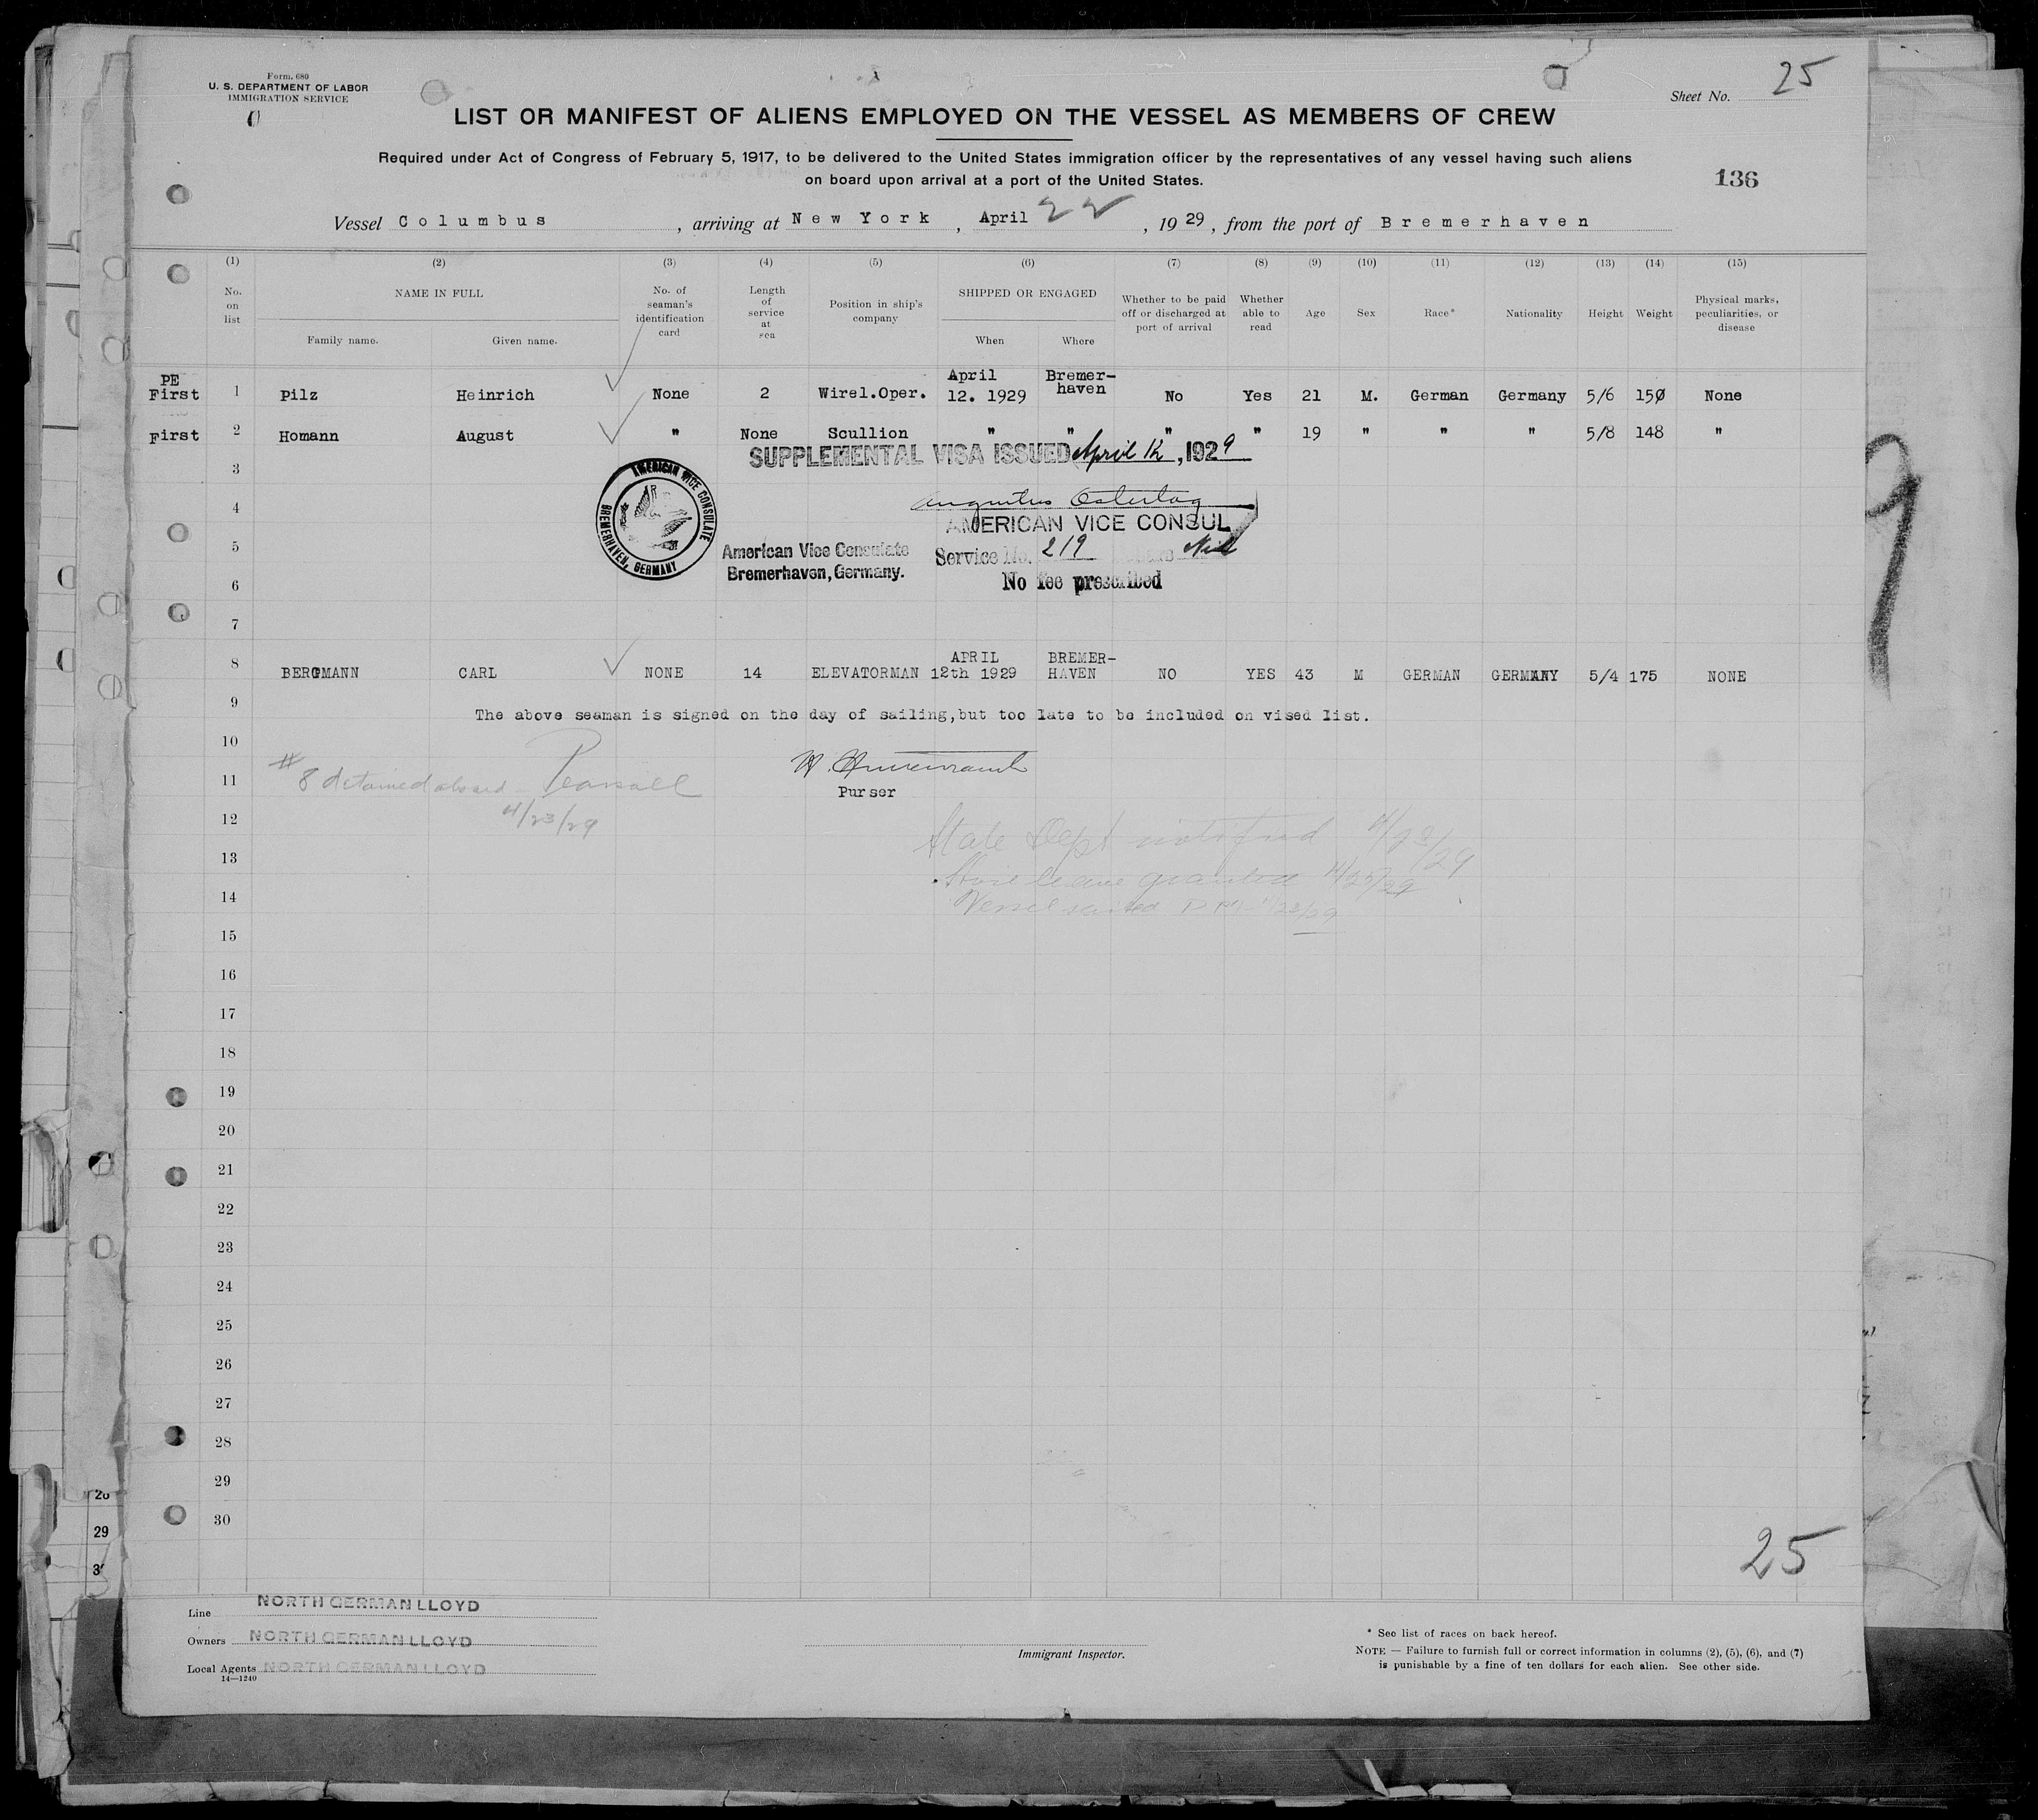 Form. 680
U. S. DEPARTMENT OF LABOR
IMMIGRATION SERVICE
Sheet No. 25
LIST OR MANIFEST OF ALIENS EMPLOYED ON THE VESSEL AS MEMBERS OF CREW
Required under Act of Congress of February 5, 1917, to be delivered to the United States immigration officer by the representatives of any vessel having such aliens
on board upon arrival at a port of the United States.
136
Vessel Columbus, arriving at New York, April 22, 1929, from the port of Bremerhaven
(1) (2) (3) (4) (5) (6) (7) (8) (9) (10) (11) (12) (13) (14) (15)
No. on list
NAME IN FULL
Family name. Given name.
No. of seaman's identification card
Length of service at sea
Position in ship's company
SHIPPED OR ENGAGED
When Where
Whether to be paid off or discharged at port of arrival
Whether able to read
Age
Sex
Race*
Nationality
Height
Weight
Physical marks, peculiarities, or disease
PE
First 1 Pilz Heinrich None 2 Wirel.Oper. April 12. 1929 Bremer-haven No Yes 21 M. German Germany 5/6 150 None
First 2 Homann August " None Scullion " " " " 19 " " " 5/8 148 "
SUPPLEMENTAL VISA ISSUED April 12, 1929
3
4
Augustus Ostertag
AMERICAN VICE CONSUL
AMERICAN VICE CONSULATE
BREMERHAVEN, GERMANY
5
American Vice Consulate
Bremerhaven, Germany.
Service No. 219 Nil
No fee prescribed
6
7
8 BERGMANN CARL NONE 14 ELEVATORMAN APRIL 12th 1929 BREMER-HAVEN NO YES 43 M GERMAN GERMANY 5/4 175 NONE
9
The above seaman is signed on the day of sailing,but too late to be included on vised list.
10
11
# 8 detained aboard - Pearsall
4/23/29
Purser
12
State Dept notified 4/23/29
13
Shore leave granted 4/25/29
14
Vessel sailed
15
16
17
18
19
20
21
22
23
24
25
26
27
28
29
30
25
Line NORTH GERMAN LLOYD
Owners NORTH GERMAN LLOYD
Local Agents NORTH GERMAN LLOYD
14—1240
Immigrant Inspector.
* See list of races on back hereof.
NOTE — Failure to furnish full or correct information in columns (2), (5), (6), and (7)
is punishable by a fine of ten dollars for each alien. See other side.
29